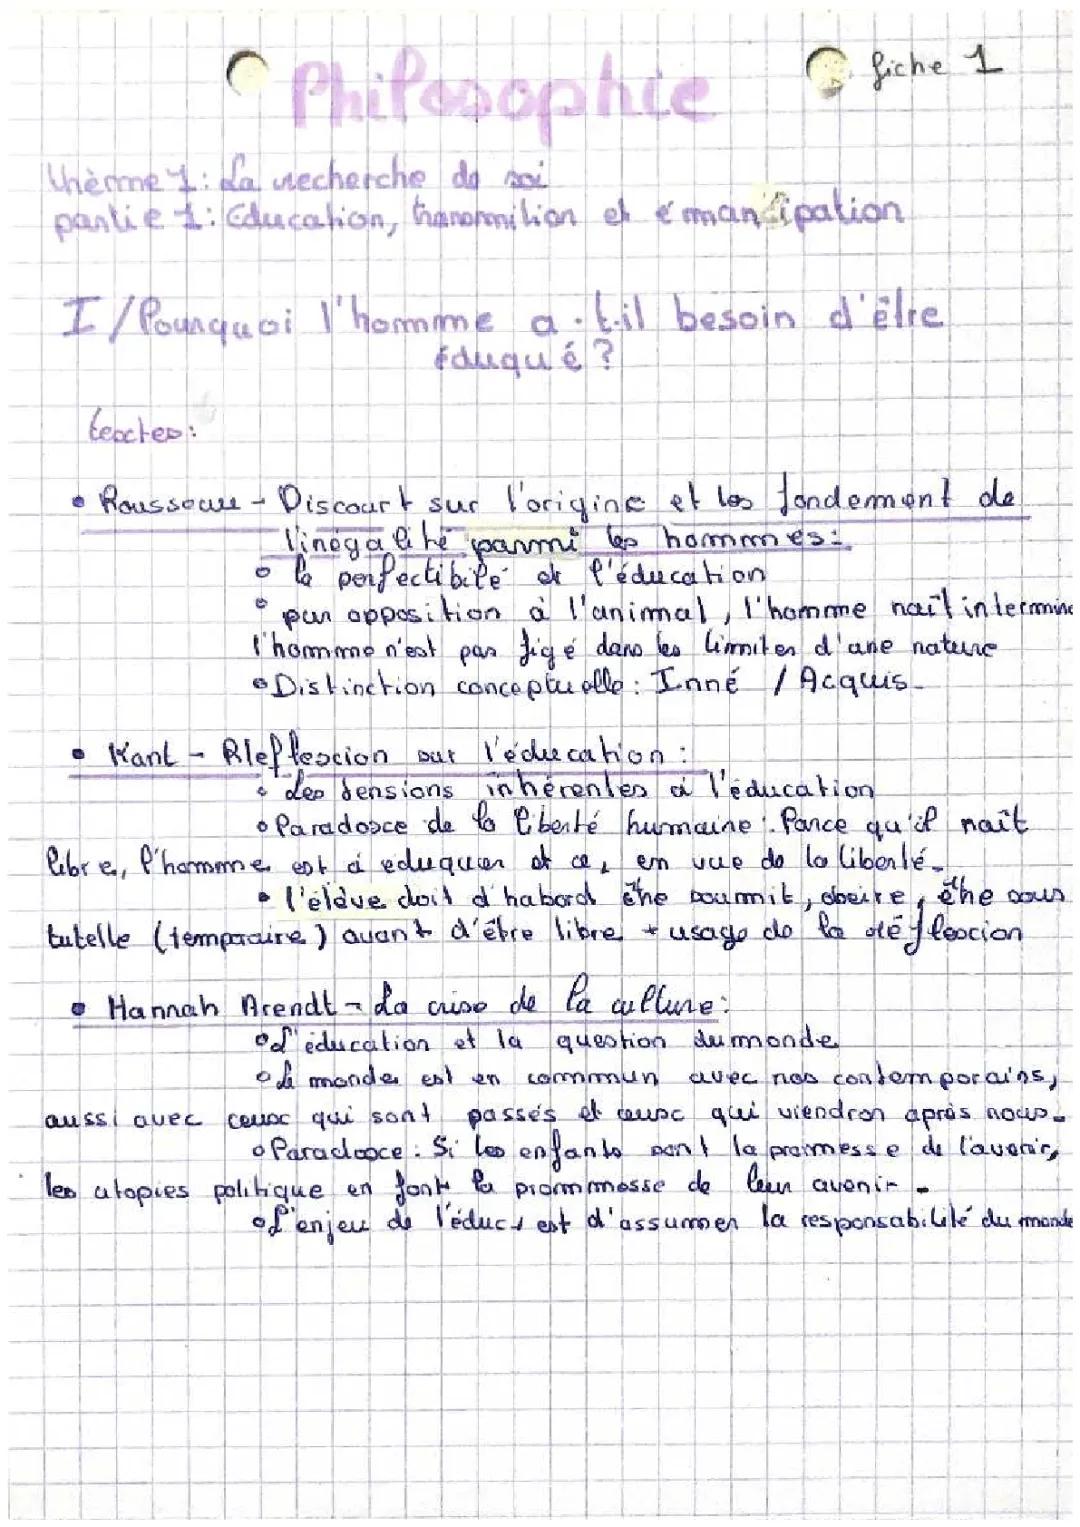 Philosophie
fiche 1
thème 1: La recherche de soi
partie 1: Education, transmition et émancipation
I/Pourquoi l'homme a-t-il besoin d'être
éduqué ?
textes:
• Rousseau - Discourt sur l'origine et les fondement de
l'inégalité parmi les hommes:
° la perfectibilé et l'éducation
° par opposition à l'animal, l'homme naît interminé
l'homme n'est pas figé dans les limites d'une nature
° Distinction conceptuelle: Inné / Acquis.
• Kant - Réflexion sur l'éducation:
° Les tensions inhérentes à l'éducation
° Paradoxe de la liberté humaine: Parce qu'il naît
libre, l'homme est à eduquer et ce, en vue de la liberté.
° l'élève doit d'habord être soumit, obeire, être sous
tutelle (temporaire) avant d'être libre + usage de la réflexion
• Hannah Arendt - La crise de la culture:
° L'éducation et la question du monde
° Le monde est en commun avec nos contemporains,
aussi avec ceux qui sont passés et ceux qui viendron après nous.
° Paradoxe: Si les enfants sont la promesse de l'avenir,
les utopies politique en font la prommesse de leur avenir.
° L'enjeu de l'éduc, est d'assumer la responsabilité du monde